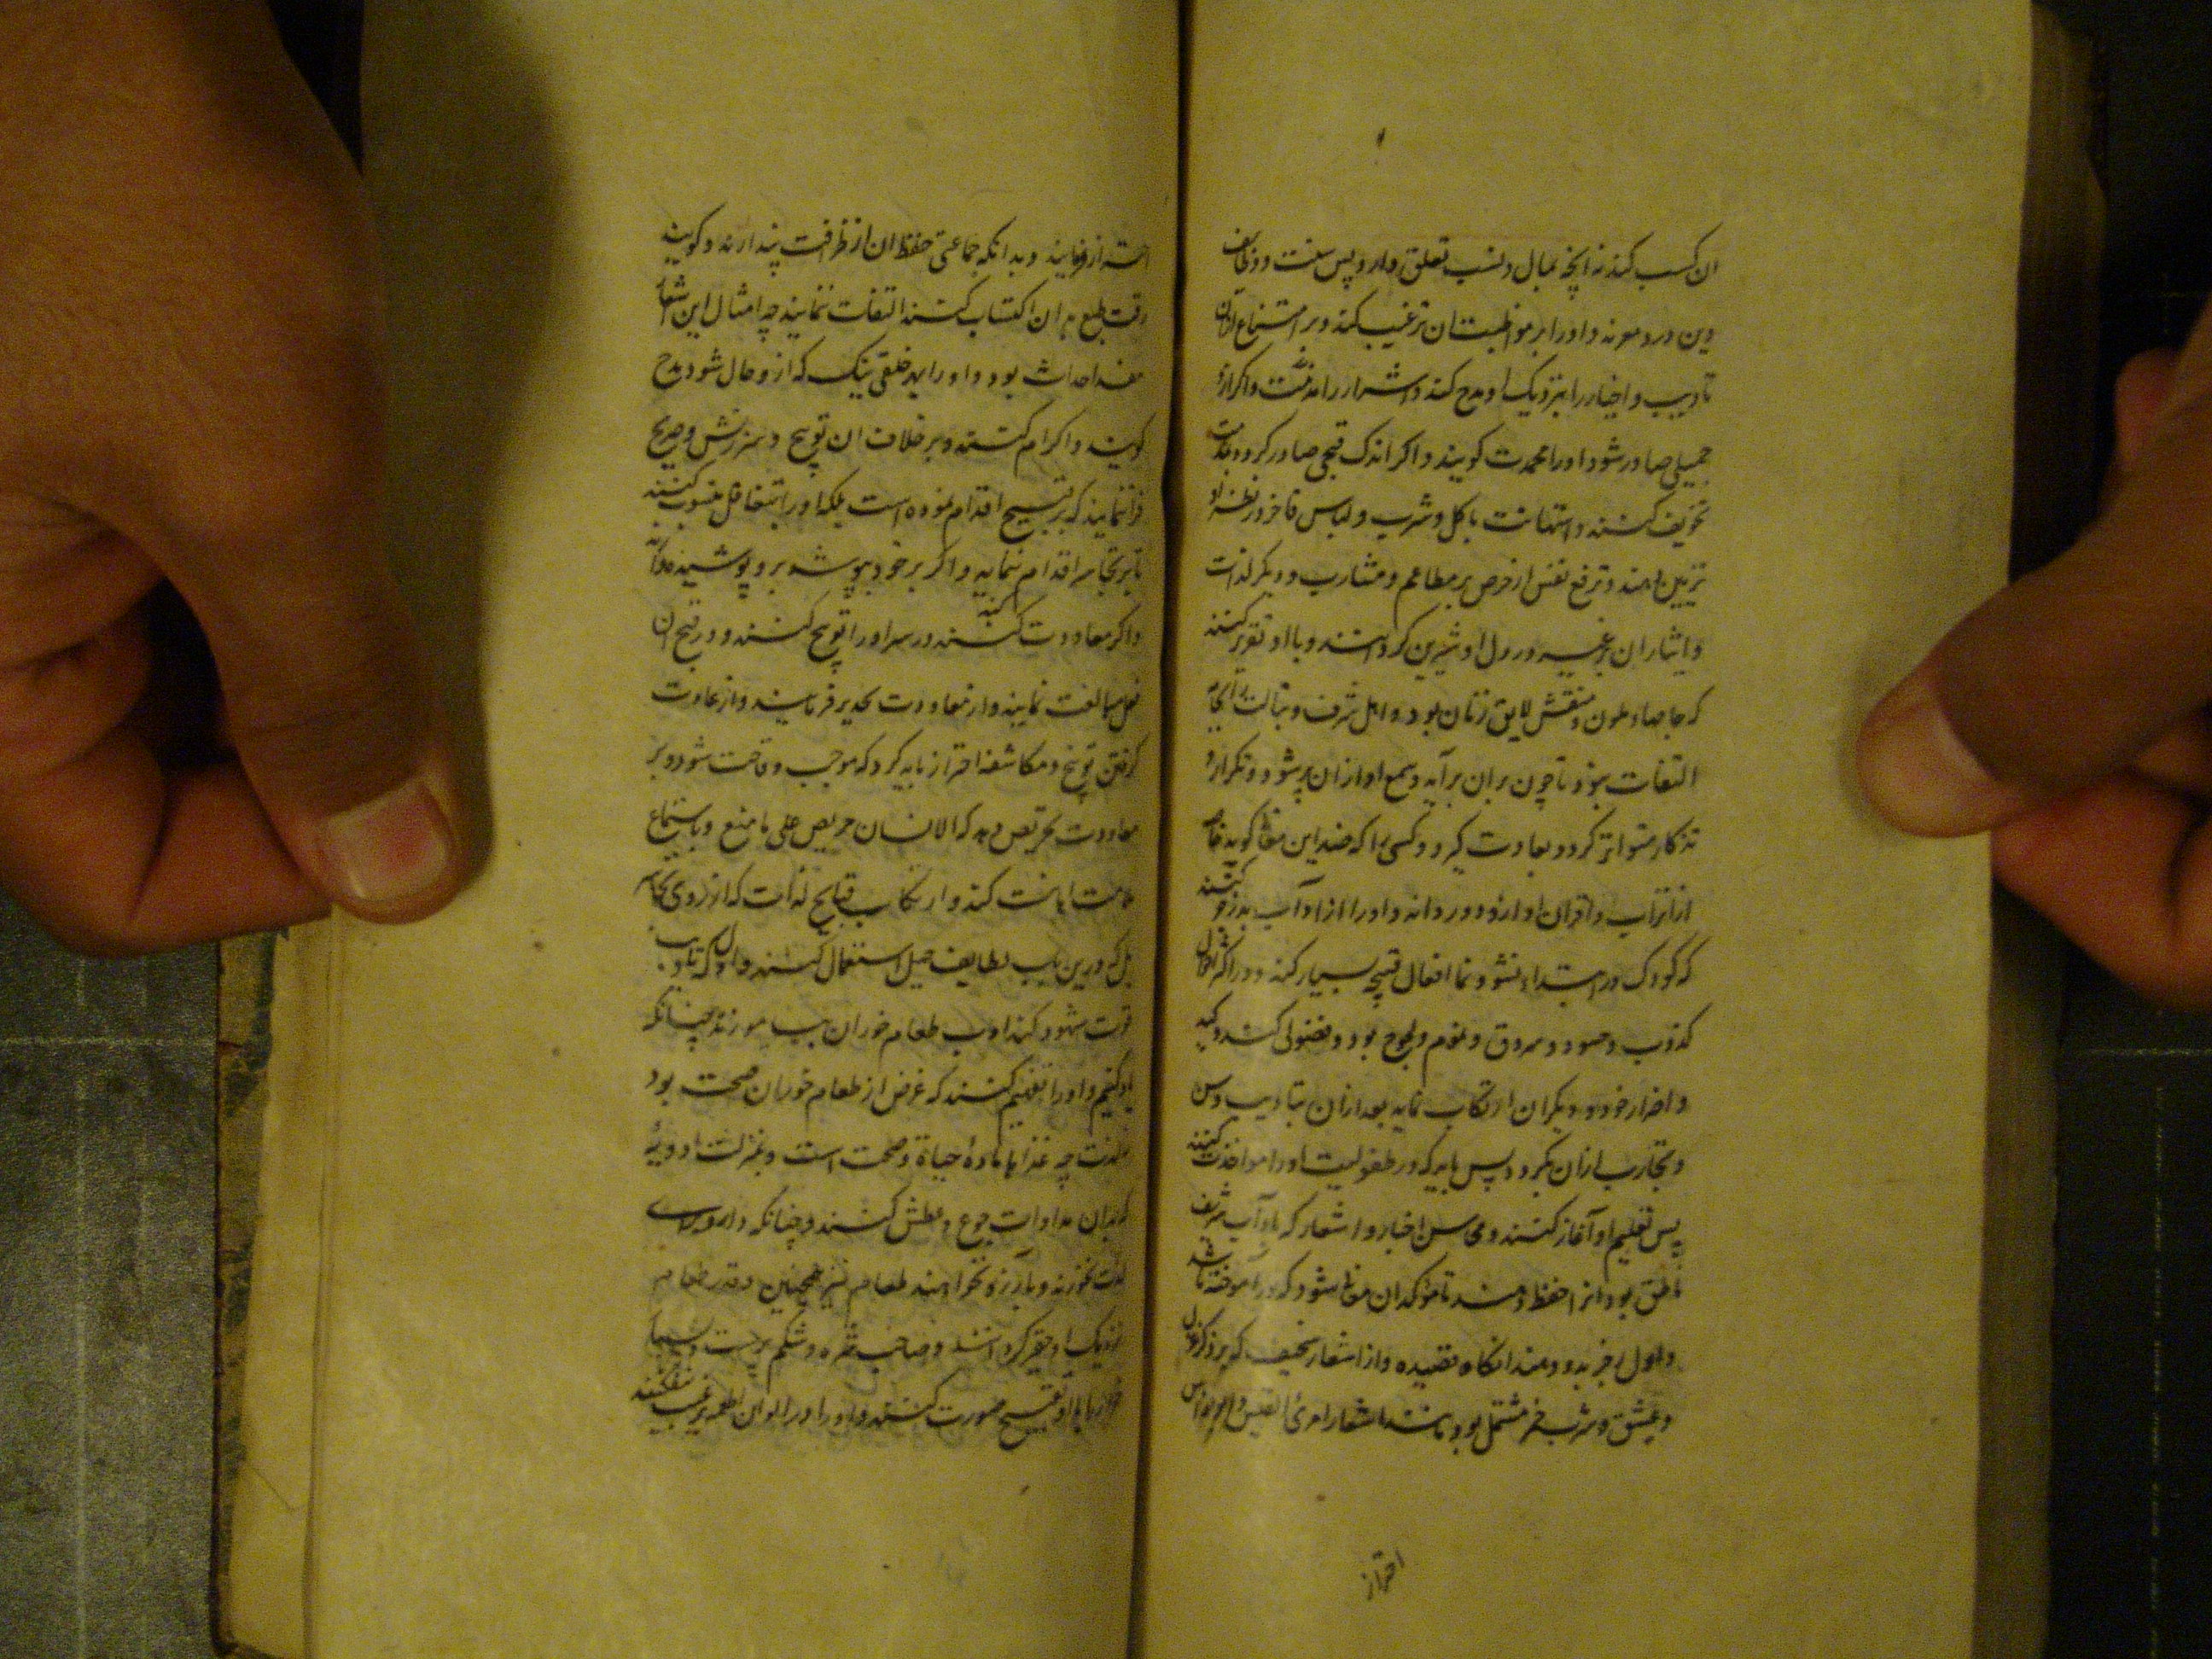 ان کسب کند نه انچه بمال و نسب تعلق دارد پس سنت و وظایف
دین درو موزند و او را بر مواظبت ان ترغیب کند و بر امتناع ازان
تادیب و اخیار را بنزدیک او مدح کند و اشرار را مذمت و اگر ازو
جمیلی صادر شود او را محمدت کویند و اکر اندک قبحی صادر کردد بمذمت
تخویف کنند و استهانت باکل و شرب و لباس فاخر در نظر او
تزیین دهند و ترفع نفس از حرص بر مطاعم و مشارب و دیکر لذات
و ایثار ان بر غیر در دل او شیرین کردانند و با او تقریر کنند
که جامهاء ملون و منقش لایق زنان بود و اهل شرف و نبالت را بجامه
التفات نبود تا چون بران برآید و سمع او ازان پر شود و تکرار و
تذکار متواتر کردد بعادت کیرد و کسی را که ضد این معانی کوید خاصه
از اتراب و اقران او ازو دور دارند و او را از آداب بد زجر کنند
که کودک در ابتداء نشو و نما افعال قبیحه بسیار کند و در اکثر احوال
کذوب و حسود و سروق و نموم و لجوج بود و فضولی کند و کید
و اضرار خود و دیکران ارتکاب نماید بعد ازان بتادیب و سن
و تجارب ازان بکردد پس باید که در طفولیت او را مواخذت کنند
پس تعلیم او آغاز کنند و محاسن اخبار و اشعار که بآداب شریف
ناطق بود او را حفظ دهند تا موکد ان معانی شود که درو آموخته باشد
و اول رجز بدو دهند انکاه قصیده و از اشعار سخیف که بر ذکر غزل
و عشق و شرب خمر مشتمل بود مانند اشعار امرئ القیس و ابو نواس
احتراز
احتراز فرمایند و بدانکه جماعتی حفظ ان از ظرافت پندارند و کویند
رقت طبع بدان اکتساب کنند التفات ننمایند چه امثال این شعار
مفسد احداث بود و او را بهر خلقی نیک که ازو حال شود مدح
کویند و اکرام کنند و بر خلاف ان توبیخ و سرزنش و صریح
فرا ننمایند که بر قبیح اقدام نموده است بلکه او را بتغافل منسوب کنند
تا بر تجاسر اقدام ننماید و اکر بر خود بپوشد برو پوشیده دارند
و اکر معاودت کند در سر او را توبیخ کنند و در قبح ان
فعل مبالغت نمایند و از معاودت تحذیر فرمایند و از عادت
کرفتن توبیخ و مکاشفه احتراز باید کرد که موجب وقاحت شود و بر
معاودت تحریص دهد که الانسان حریص علی ما منع و باستماع
ملامت اهانت کند و ارتکاب قبایح لذات کند از روی تجاسر
بل که درین باب لطایف حیل استعمال کنند و اول که تادیب
قوت شهوی کند ادب طعام خوردن بیاموزند چنانکه
یاد کنیم و او را تفهیم کنند که غرض از طعام خوردن صحت بود
نه لذت چه غذاها ماده حیاة و صحت است و بمنزلت ادویه
که بدان مداوات جوع و عطش کنند و چنانکه دارو برای
لذت نخورند و بآرزو نخواهند طعام نیز همچنین و قدر طعام
نزدیک او حقیر کردانند و صاحب شره و شکم پرست و بسیار
خوار را با او تقبیح صورت کنند و او را در الوان اطعمه ترغیب نیفکنند